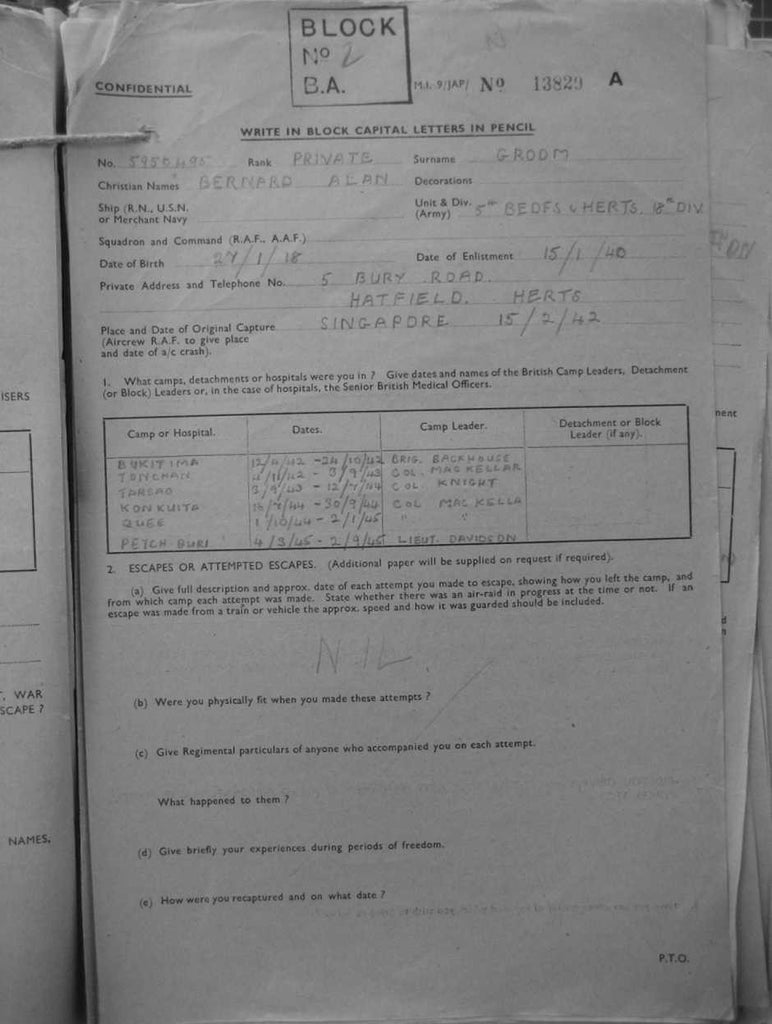 BLOCK
Nº 2
B.A.
CONFIDENTIAL
M.I. 9/JAP/ Nº 13829 A
WRITE IN BLOCK CAPITAL LETTERS IN PENCIL
No. 5950495 Rank PRIVATE Surname GROOM
Christian Names BERNARD ALAN Decorations
Ship (R.N., U.S.N. or Merchant Navy
Unit & Div. (Army) 5TH BEDFS & HERTS. 18TH DIV
Squadron and Command (R.A.F., A.A.F.)
Date of Birth 27/1/18 Date of Enlistment 15/1/40
Private Address and Telephone No. 5 BURY ROAD.
HATFIELD. HERTS
Place and Date of Original Capture SINGAPORE 15/2/42
(Aircrew R.A.F. to give place
and date of a/c crash).
1. What camps, detachments or hospitals were you in ? Give dates and names of the British Camp Leaders, Detachment
(or Block) Leaders or, in the case of hospitals, the Senior British Medical Officers.
Camp or Hospital. Dates. Camp Leader. Detachment or Block Leader (if any).
BUKITIMA 12/4/42 - 24/10/42 BRIG. BACKHOUSE
TONCHAN 4/11/42 - 3/9/43 COL. MACKELLAR
TARSAO 3/9/43 - 12/7/44 COL. KNIGHT
KONKUITA 18/7/44 - 30/9/44 COL MACKELLA
QUEE 1/10/44 - 2/1/45 " "
PETCH BURI 4/3/45 - 2/9/45 LIEUT. DAVIDSON
2. ESCAPES OR ATTEMPTED ESCAPES. (Additional paper will be supplied on request if required).
(a) Give full description and approx. date of each attempt you made to escape, showing how you left the camp, and
from which camp each attempt was made. State whether there was an air-raid in progress at the time or not. If an
escape was made from a train or vehicle the approx. speed and how it was guarded should be included.
NIL.
(b) Were you physically fit when you made these attempts ?
(c) Give Regimental particulars of anyone who accompanied you on each attempt.
What happened to them ?
(d) Give briefly your experiences during periods of freedom.
(e) How were you recaptured and on what date ?
P.T.O.
ISERS
, WAR
SCAPE ?
NAMES.